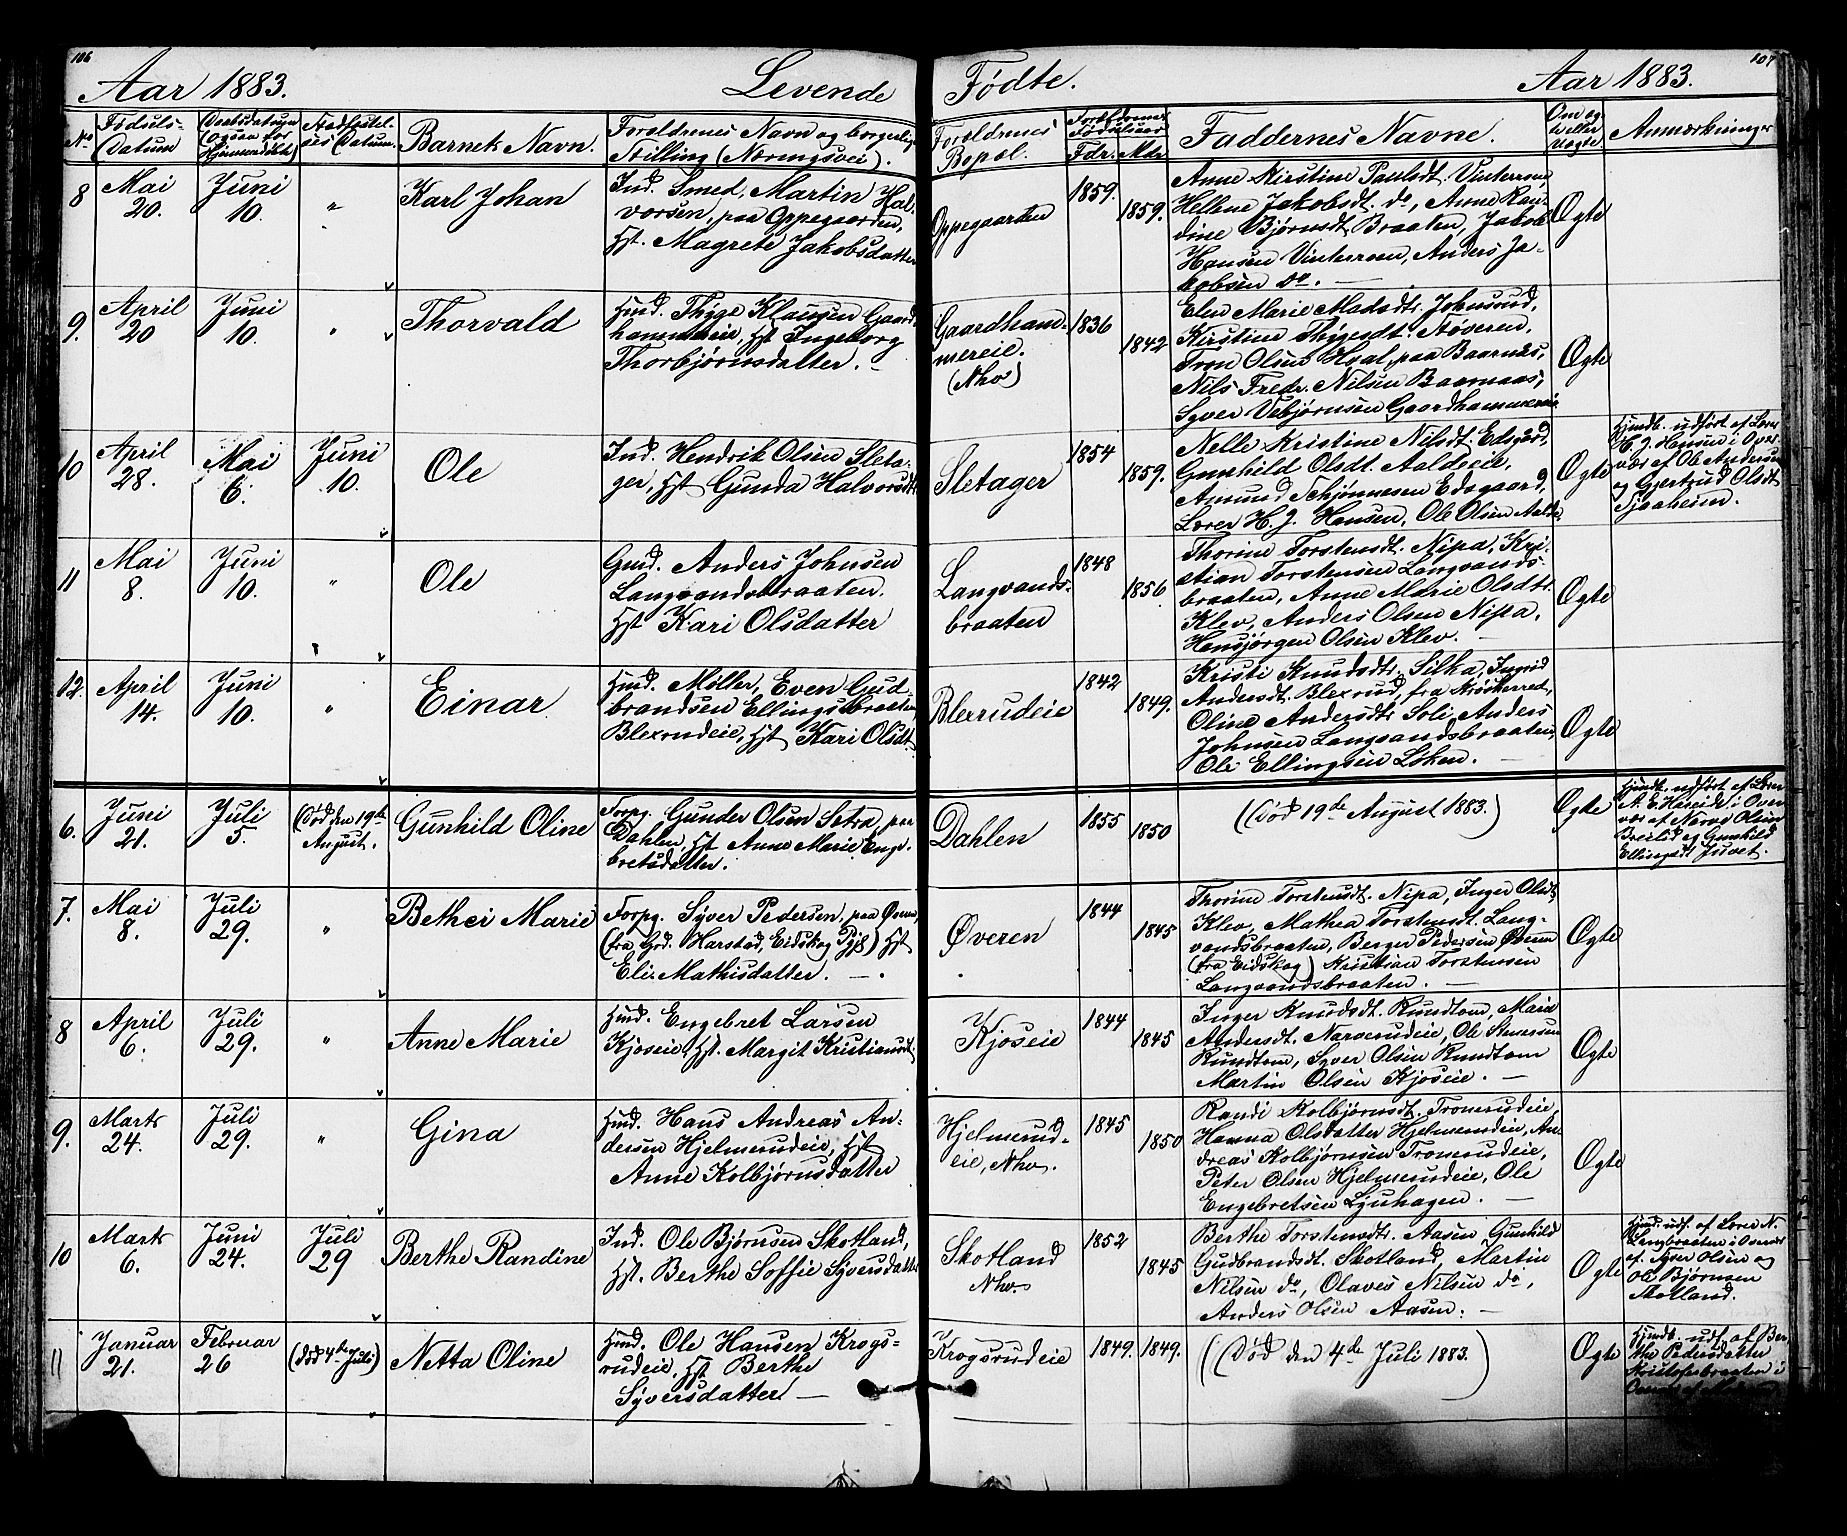 106
107
Aar 1883. Levende Fødte. Aar 1883.
No Fødsels-Datum Daabsdatum (ogsaa for Hjemmedøbte) Stadfæstel-ses (Datum. Barnets Navn. Forældrenes Navn og borgerlige Stilling (Næringsvei). Forældrenes Bopæl. Forældrenes Fødselsaar Fdr. Mdr. Faddernes Navne. Om ægte eller uægte Anmærkninger
8 Mai 20. Juni 10. " Karl Johan
Ind. Smed, Martin Hal-
vorsen, paa Oppegaarden,
Hst. Magrete Jakobsdatter
Oppegaarden 1859. 1859.
Anne Kirstine Paulsdt. Vinterroen,
Hellene Jakobsdt. do, Anne Ran-
dine Bjørnsdt Braaten, Jakob
Hansen Vinterroen, Anders Ja-
kobsen do. —
Ægte
9. April 20 Juni 10. " Thorvald
Hmd. Thyge Klausen Gaard-
hammereie, Hst Ingeborg
Thorbjørnsdatter. —
Gaardham-
mereie.
(Nho)
1836 1842
Elen Marie Madsdtr. Johnsrud,
Kirstine Thygesdt. Støveren,
Tron Olsen Hval, paa Baarnæs,
Nils Fredr. Nilsen Baarnaas,
Syver Vebjørnsen Gaardhammereie
Ægte
10 April 28. Mai 6. Juni 10. Ole
Ind. Hendrik Olsen Sleta-
ger, Hst Gunda Halvorsdt
Sletager 1854 1859.
Nelle Kristine Nilsdt. Edsgard,
Gunhild Olsdt. Aaldeeie,
Amund Schjønnesen Edsgaard,
Lærer H. J. Hansen, Ole Olsen Aalde
Ægte
Hjmdb. udført af Lærer
H. J. Hansen i Over-
vær af Ole Andersen
og Gjertrud Olsdt
Tjaaheim.
11 Mai 8. Juni 10. " Ole
Gmd. Anders Johnsen
Langvandsbraaten.
Hst Kari Olsdatter
Langvands-
braaten
1848 1856
Thorine Torstensdt. Nipa, Kri-
stian Torstensen Langvands-
braaten, Anne Marie Olsdtr.
Klev, Anders Olsen Nipa,
Hansjørgen Olsen Klev. —
Ægte
12. April 14. Juni 10. " Einar
Hmd. Møller, Even Gud-
brandsen Ellingsbraaten,
Blexrudeie, Hst Kari Olsdt.
Blexrudeie 1842 1849.
Kristi Knudsdtr. Silka, Ingrid
Andersdt. Blexrud, fra
Oline Andersdtr Soli, Anders
Johnsen Langvandsbraaten,
Ole Ellingsen Løken. —
Ægte
6. Juni 21. Juli 5. (Død den 19de August. Gunhild Oline
Forpg. Gunder Olsen Sætra, paa
Dahlen, Hst Anne Marie Enge-
bretsdatter.
Dahlen 1855 1850
(Død 19de August 1883.)
Ægte
Hjmdt. udført af Lærer
A. E. Hareide i Over-
vær af Narve Olsen
Breilid og Gunhild
Ellingsdt Juvet.
7. Mai 8. Juli 29. " Bethei Marie
Forpg. Syver Pedersen, paa Øveren,
(fra Grd. Harstad, Eidskog Pgj) Hst
Eli Mathisdatter. —
Øveren 1844 1845
Thorine Torstensdt. Nipa, Inger Olsdt.
Klev, Mathea Torstensdt. Lang-
vandsbraaten, Berger Pedersen Øveren
(fra Eidskog) Kristian Torstensen
Langvandsbraaten. —
Ægte
8 April 6. Juli 29. " Anne Marie
Hmd. Engebret Larsen
Kjoseie, Hst. Margit Kristiansdt.
Kjøseie 1844 1845
Inger Knudsdt. Rundtom, Marie
Andersdt. Narverudeie, Ole
Rundtom, Syver Olsen Rundtom
Martin Olsen Kjøseie. —
Ægte
9. Marts 24. Juli 29. " Gina
Hmd. Hans Andreas An-
dersen Hjelmerudeie, Hst
Anne Kolbjørnsdatter
Hjelmerud-
eie, Nho.
1845 1850
Randi Kolbjørnsdt. Tronrudeie,
Hanna Olsdatter Hjelmerudeie, An-
dreas Kolbjørnsen Tronrudeie,
Peter Olsen Hjelmerudeie, Ole
Engebretsen Ljuhagen. —
Ægte
10 Marts 6. Juni 24. Juli 29 Berthe Randine
Ind. Ole Bjørnsen Skotland,
Hst. Berthe Soffie Syversdatter
Skotland
Nho.
1852 1845
Berthe Torstensdtr. Aasen, Gunhild
Gudbrandsdt. Skotland, Martin
Nilsen do, Olaves Nilsen do,
Anders Olsen Aasen. —
Ægte
Hjmd. udf. af Lærer N.
Langbraaten i Overvær
af Syver Olsen og
Ole Bjørnsen
Skotland.
11 Januar 21. Februar 26 (død 4de Juli) Netta Oline
Hmd. Ole Hansen Krogs-
rudeie, Hst Berthe
Syversdatter —
Krogsrudeie 1849. 1849.
(Død den 4de Juli 1883.)
Ægte
Hjmdb. udf. af Ber-
the Pedersdatter
Kristofersbraaten i